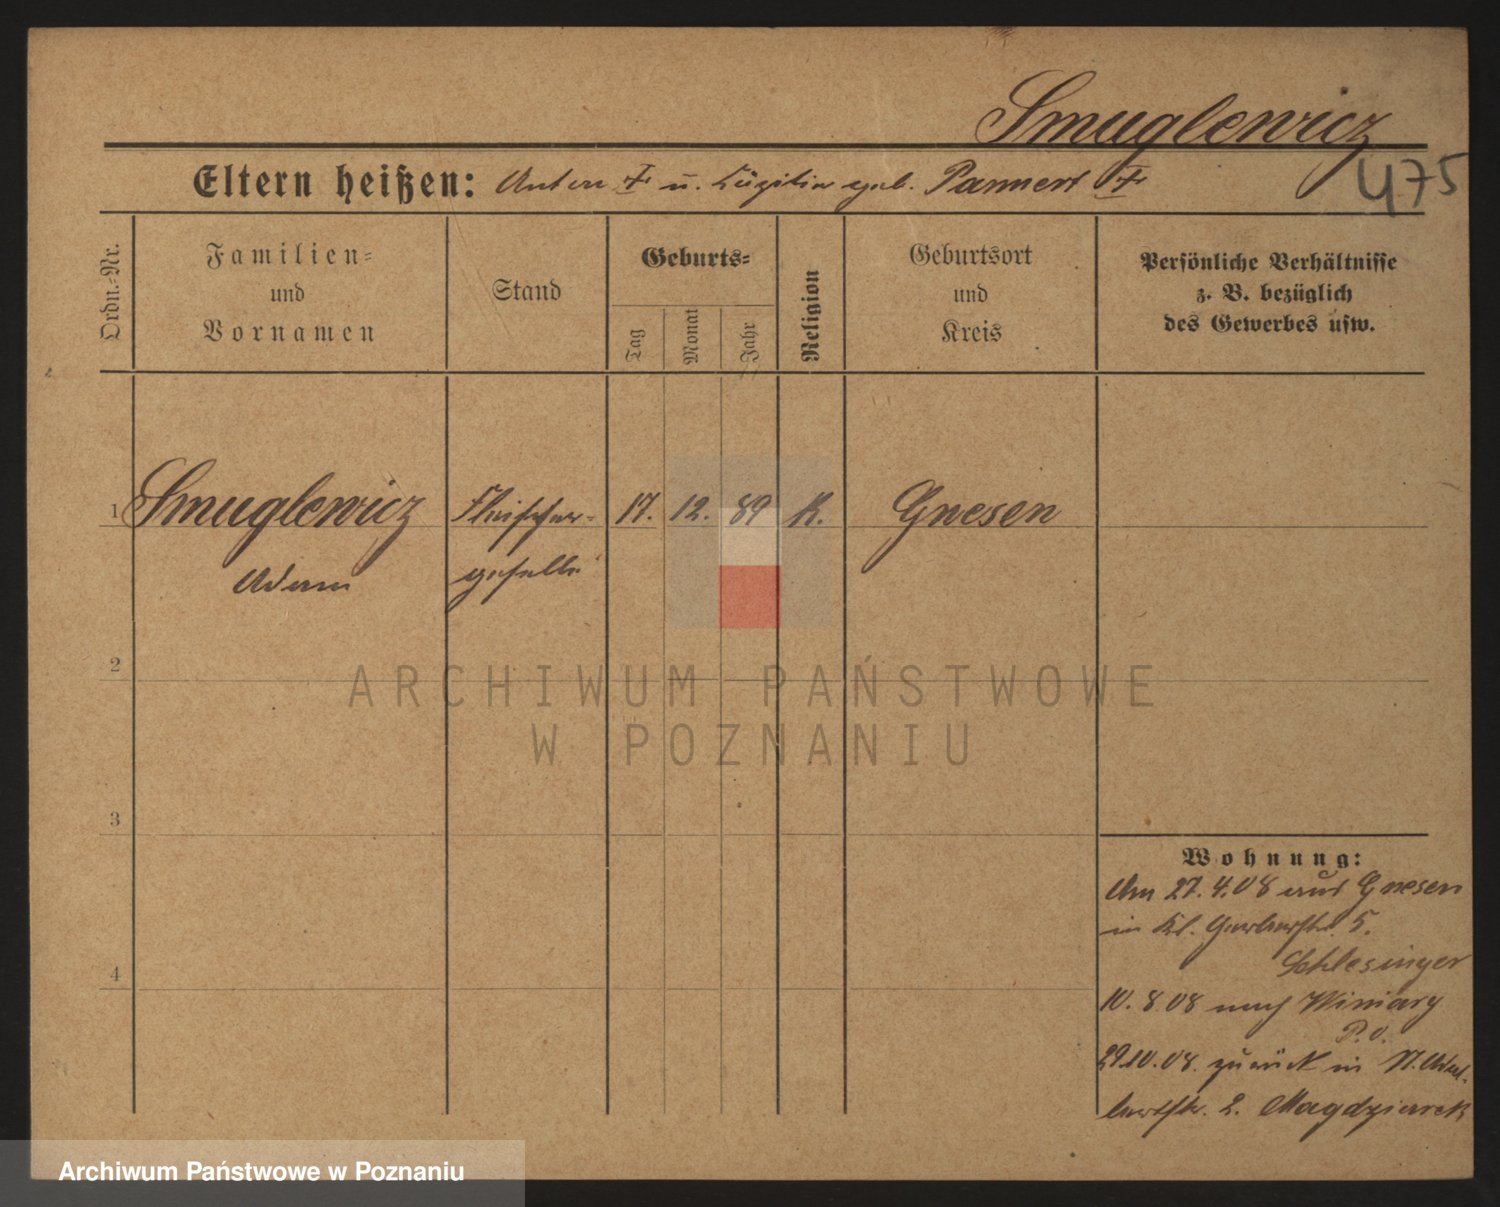 Smuglewicz
475
Eltern heißen: Anton † u. Cäzilia geb. Pannert †
Ordn.-Nr.
Familien-
und
Vornamen
Stand
Geburts-
Tag
Monat
Jahr
Religion
Geburtsort
und
Kreis
Persönliche Verhältnisse
z. B. bezüglich
des Gewerbes usw.
1 Smuglewicz Fleischer- 17. 12. 89 K. Gnesen
Adam geselle
2
ARCHIWUM PAŃSTWOWE
W POZNANIU
3
Wohnung:
Am 27.4.08 aus Gnesen
in Kl. Gerberstr. 5.
Schlesinger
4
10.8.08 nach Winiary
P. O.
29.10.08. zurück in St. Adal-
bertstr. 2. Magdziarek
Archiwum Państwowe w Poznaniu